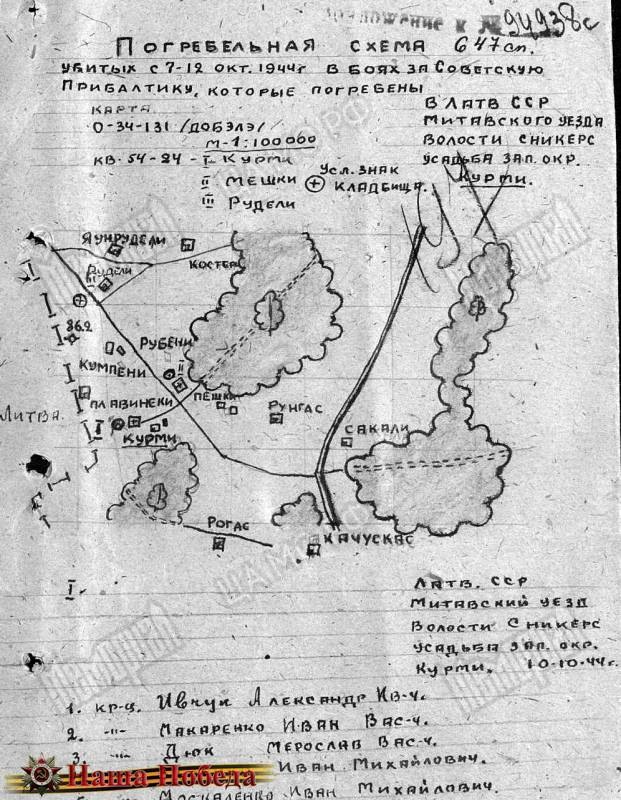 Приложение к № 94938с
Погребельная схема 647сп.
убитых с 7-12 окт. 1944г в боях за Советскую
Прибалтику, которые погребены
карта
О-34-131 /ДОБЭЛЭ/
М-1:100000
кв. 54-24 - I - Курми
II Мешки
III Рудели
Усл. знак
кладбища.
В Латв ССР
Митавского уезда
Волости Сникерс
усадьба зап. окр.
Курми.
Яунрудели
Рудели
III
Костер
I
86.2
Рубени
II
Кумпени
Плавинески
Пешки
Рунгас
Сакали
Литва.
I
Курми
Рогас
Качускас
I.
Латв. ССР
Митавский уезд
Волости Сникерс
усадьба зап. окр.
Курми. 10-10-44г.
1. кр-ц. Ивчук Александр Ив-ч.
2. -"- Макаренко Иван Вас-ч.
3. -"- Дюк Мерослав Вас-ч.
Иван Михайлович.
Москаленко Иван Михайлович.
Наша Победа